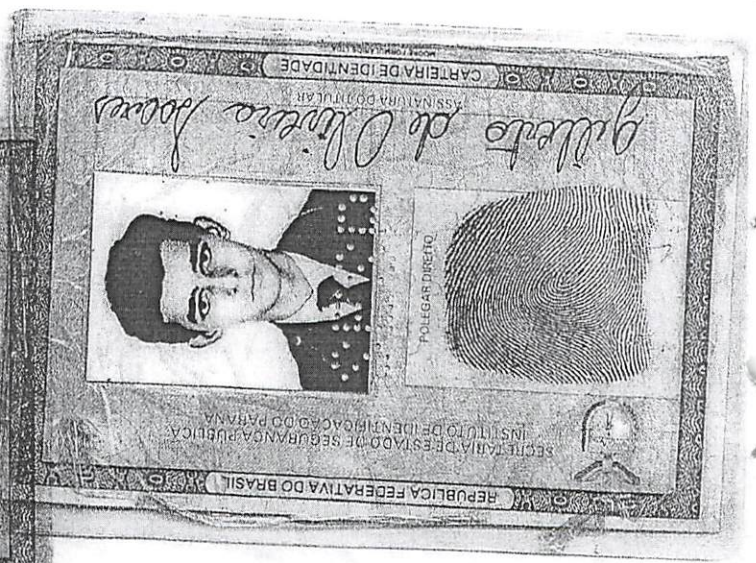 REPÚBLICA FEDERATIVA DO BRASIL
SECRETARIA DE ESTADO DE SEGURANÇA PÚBLICA
INSTITUTO DE IDENTIFICAÇÃO DO PARANÁ
POLEGAR DIREITO
Gilberto de Oliveira Soares
ASSINATURA DO TITULAR
CARTEIRA DE IDENTIDADE